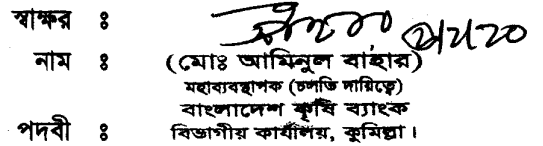 স্বাক্ষর ঃ
নাম ঃ (মোঃ আমিনুল বাহার)
মহাব্যবস্থাপক (চলতি দায়িত্বে)
বাংলাদেশ কৃষি ব্যাংক
পদবী ঃ বিভাগীয় কার্যালয়, কুমিল্লা।